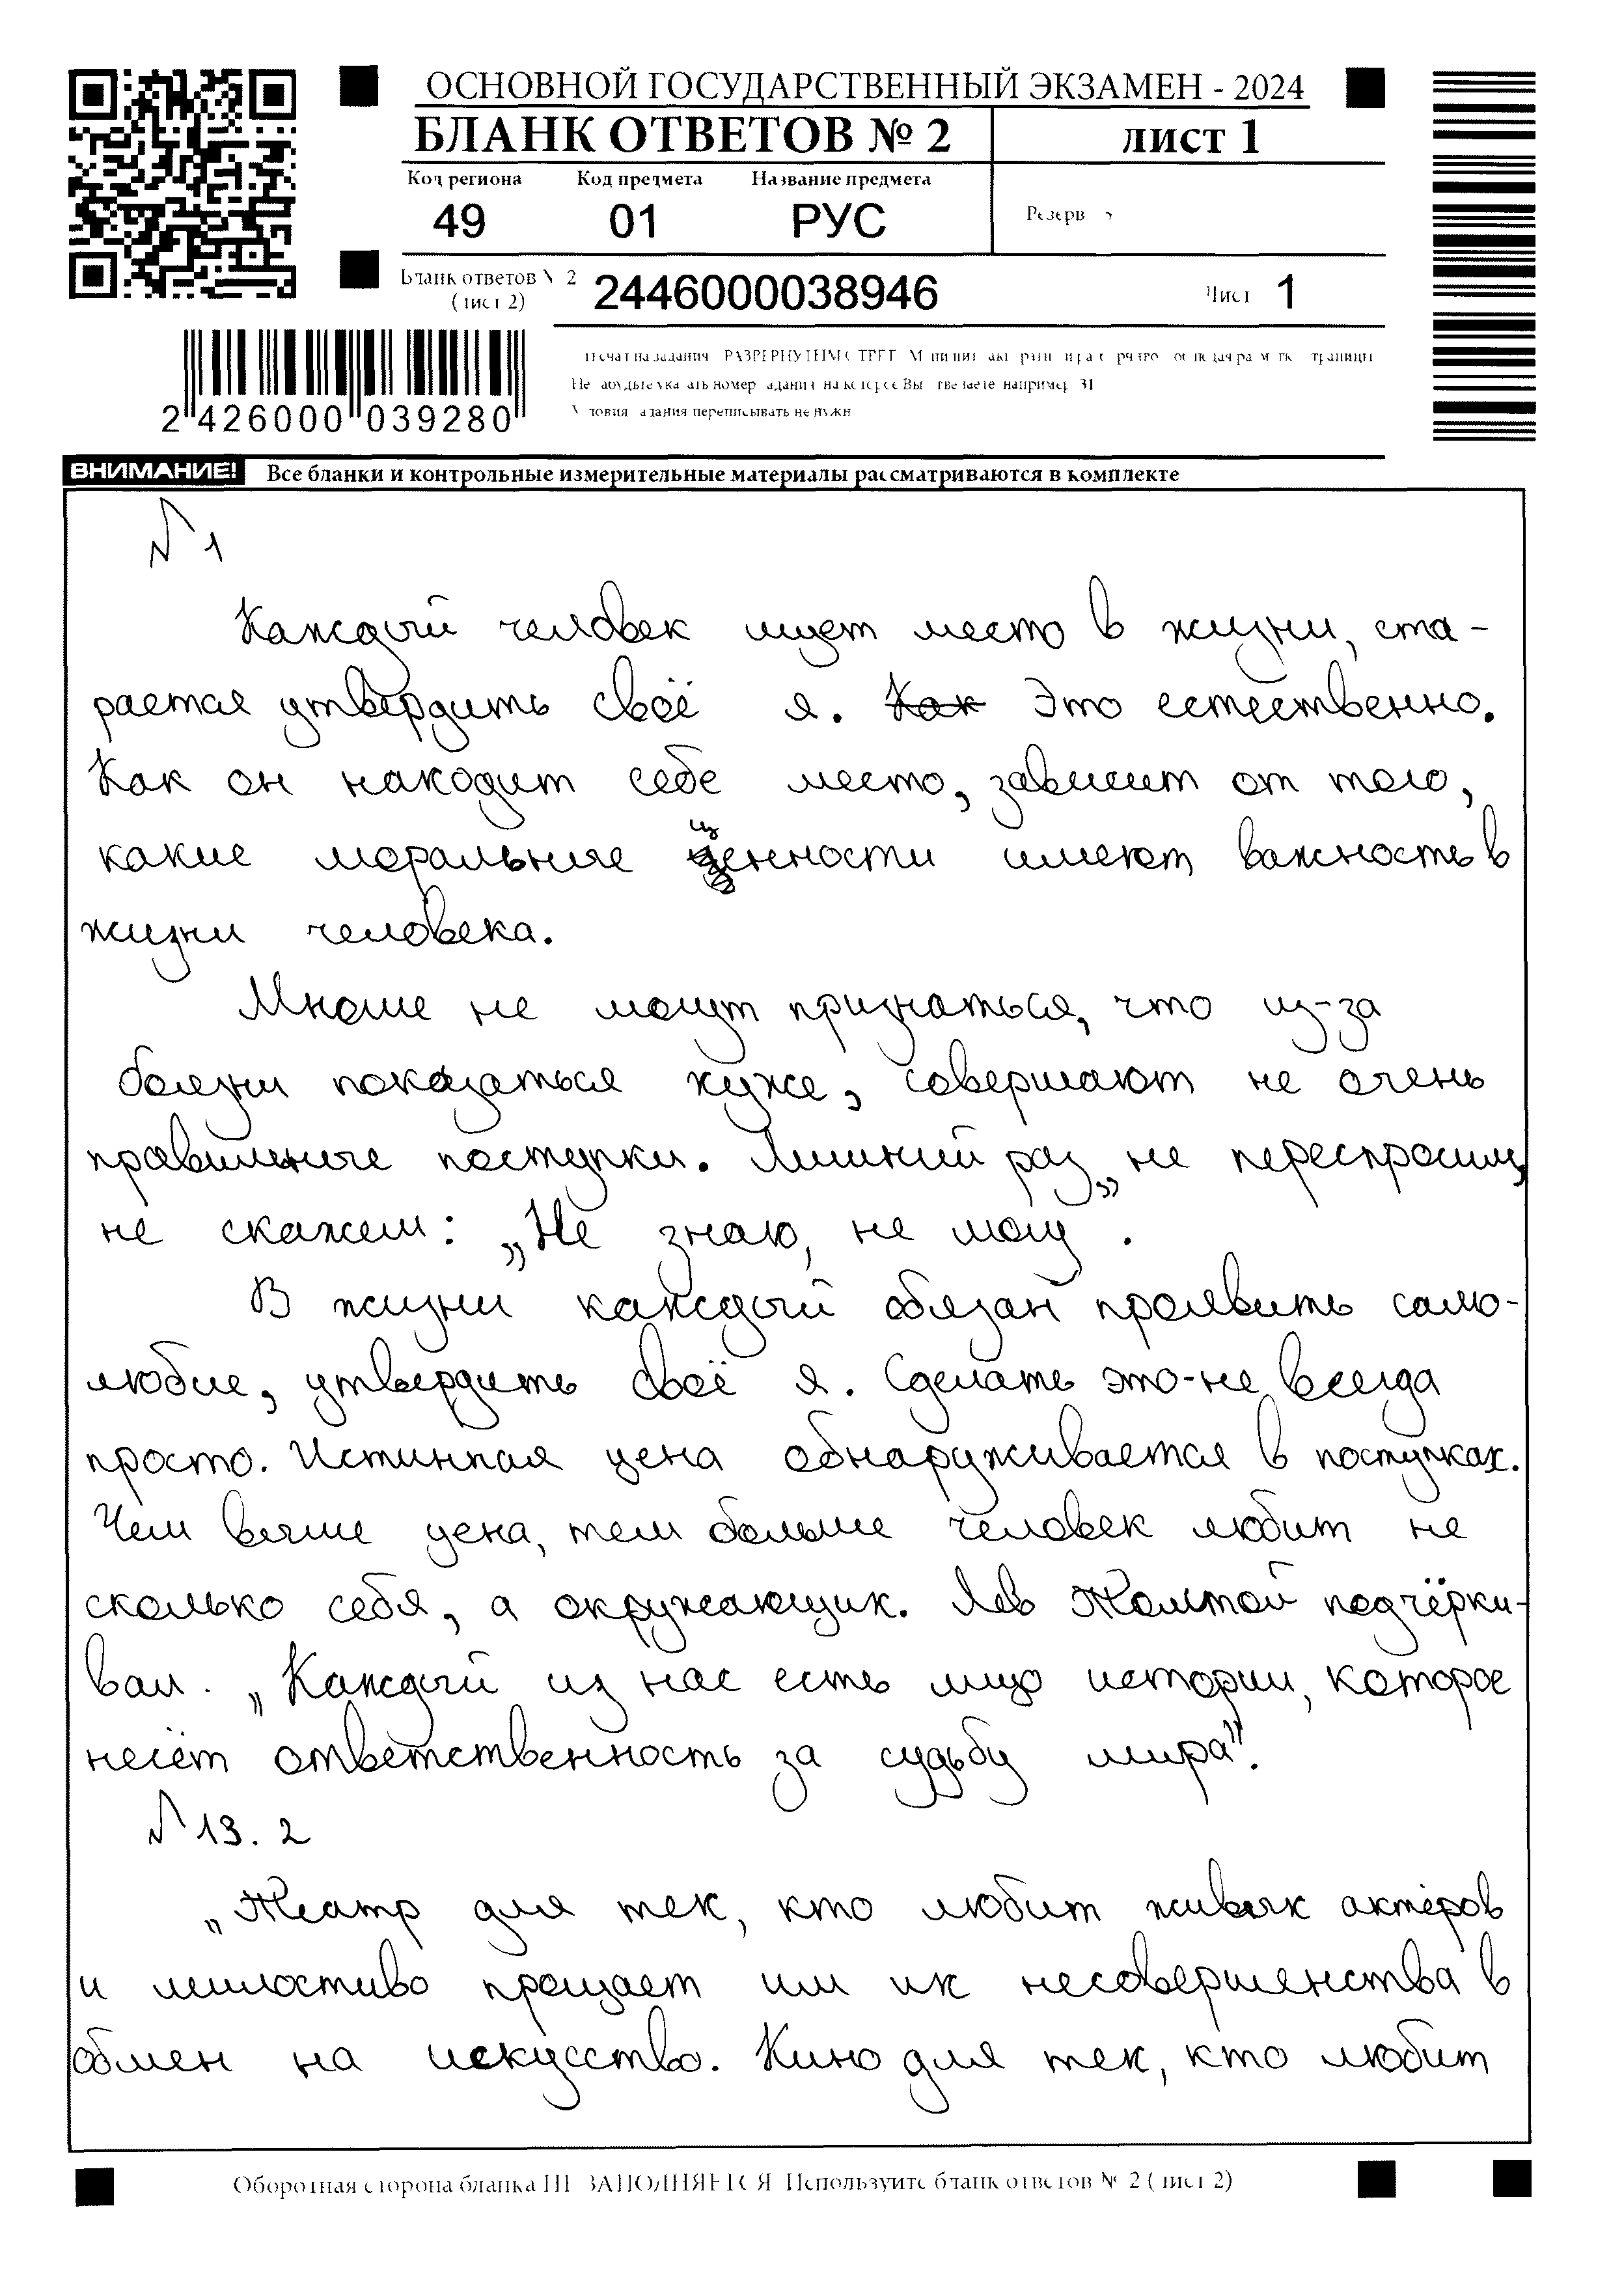 ОСНОВНОЙ ГОСУДАРСТВЕННЫЙ ЭКЗАМЕН - 2024
БЛАНК ОТВЕТОВ № 2 лист 1
Код региона Код предмета Название предмета
49 01 РУС Резерв
Бланк ответов № 2
(лист 2) 2446000038946 Лист 1
2 426000 039280
Все бланки и контрольные измерительные материалы рассматриваются в комплекте
ВНИМАНИЕ!
№ 1
Каждый человек ищет место в жизни, ста-
рается утвердить своё я. Как Это естественно.
Как он находит себе место, зависит от того,
какие моральные ценности имеют важность в
жизни человека.
Многие не могут признаться, что из-за
боязни показаться хуже, совершают не очень
правильные поступки. Лишний раз не переспросим,
не скажем: „Не знаю, не могу”.
В жизни каждый обязан проявить само-
любие, утвердить своё я. Сделать это-не всегда
просто. Истинная цена обнаруживается в поступках.
Чем выше цена, тем больше человек любит не
сколько себя, а окружающих. Лев Толстой подчёрки-
вал. „Каждый из нас есть лицо истории, которое
несёт ответственность за судьбу мира”.
№ 13. 2
„Театр для тех, кто любит живых актёров
и милостиво прощает им их несовершенства в
обмен на искусство. Кино для тех, кто любит
Оборотная сторона бланка НЕ ЗАПОЛНЯЕТСЯ Используйте бланк ответов № 2 (лист 2)